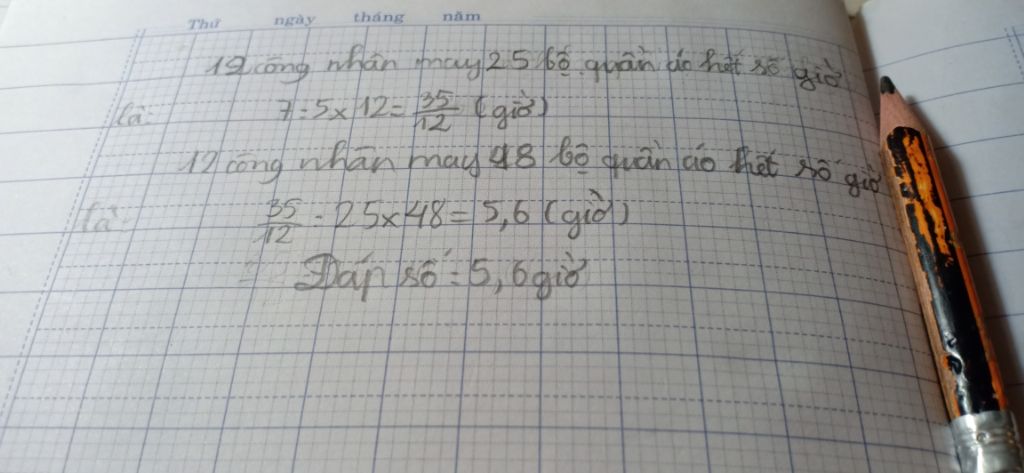 Thứ ngày tháng năm
12 công nhân may 25 bộ quần áo hết số giờ
là:
7 : 5 x 12 = 35/12 (giờ)
12 công nhân may 48 bộ quần áo hết số giờ
là:
35/12 : 25 x 48 = 5,6 (giờ)
Đáp số : 5,6 giờ